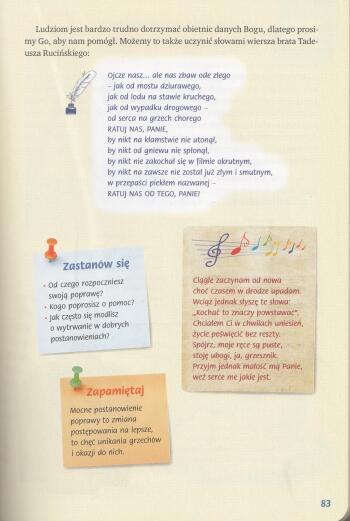 Ludziom jest bardzo trudno dotrzymać obietnic danych Bogu, dlatego prosi-
my Go, aby nam pomógł. Możemy to także uczynić słowami wiersza brata Tade-
usza Rucińskiego:
Ojcze nasz... ale nas zbaw ode złego
– jak od mostu dziurawego,
jak od lodu na stawie kruchego,
jak od wypadku drogowego –
od serca na grzech chorego
RATUJ NAS, PANIE,
by nikt na kłamstwie nie utonął,
by nikt od gniewu nie spłonął,
by nikt nie zakochał się w filmie okrutnym,
by nikt na zawsze nie został już złym i smutnym,
w przepaści piekłem nazwanej –
RATUJ NAS OD TEGO, PANIE!
Zastanów się
• Od czego rozpoczniesz
swoją poprawę?
• Kogo poprosisz o pomoc?
• Jak często się modlisz
o wytrwanie w dobrych
postanowieniach?
Ciągle zaczynam od nowa
choć czasem w drodze upadam.
Wciąż jednak słyszę te słowa:
„Kochać to znaczy powstawać".
Chciałem Ci w chwilach uniesień,
życie poświęcić bez reszty.
Spójrz, moje ręce są puste,
stoję ubogi, ja, grzesznik.
Przyjm jednak małość mą Panie,
weź serce me jakie jest.
Zapamiętaj
Mocne postanowienie
poprawy to zmiana
postępowania na lepsze,
to chęć unikania grzechów
i okazji do nich.
83